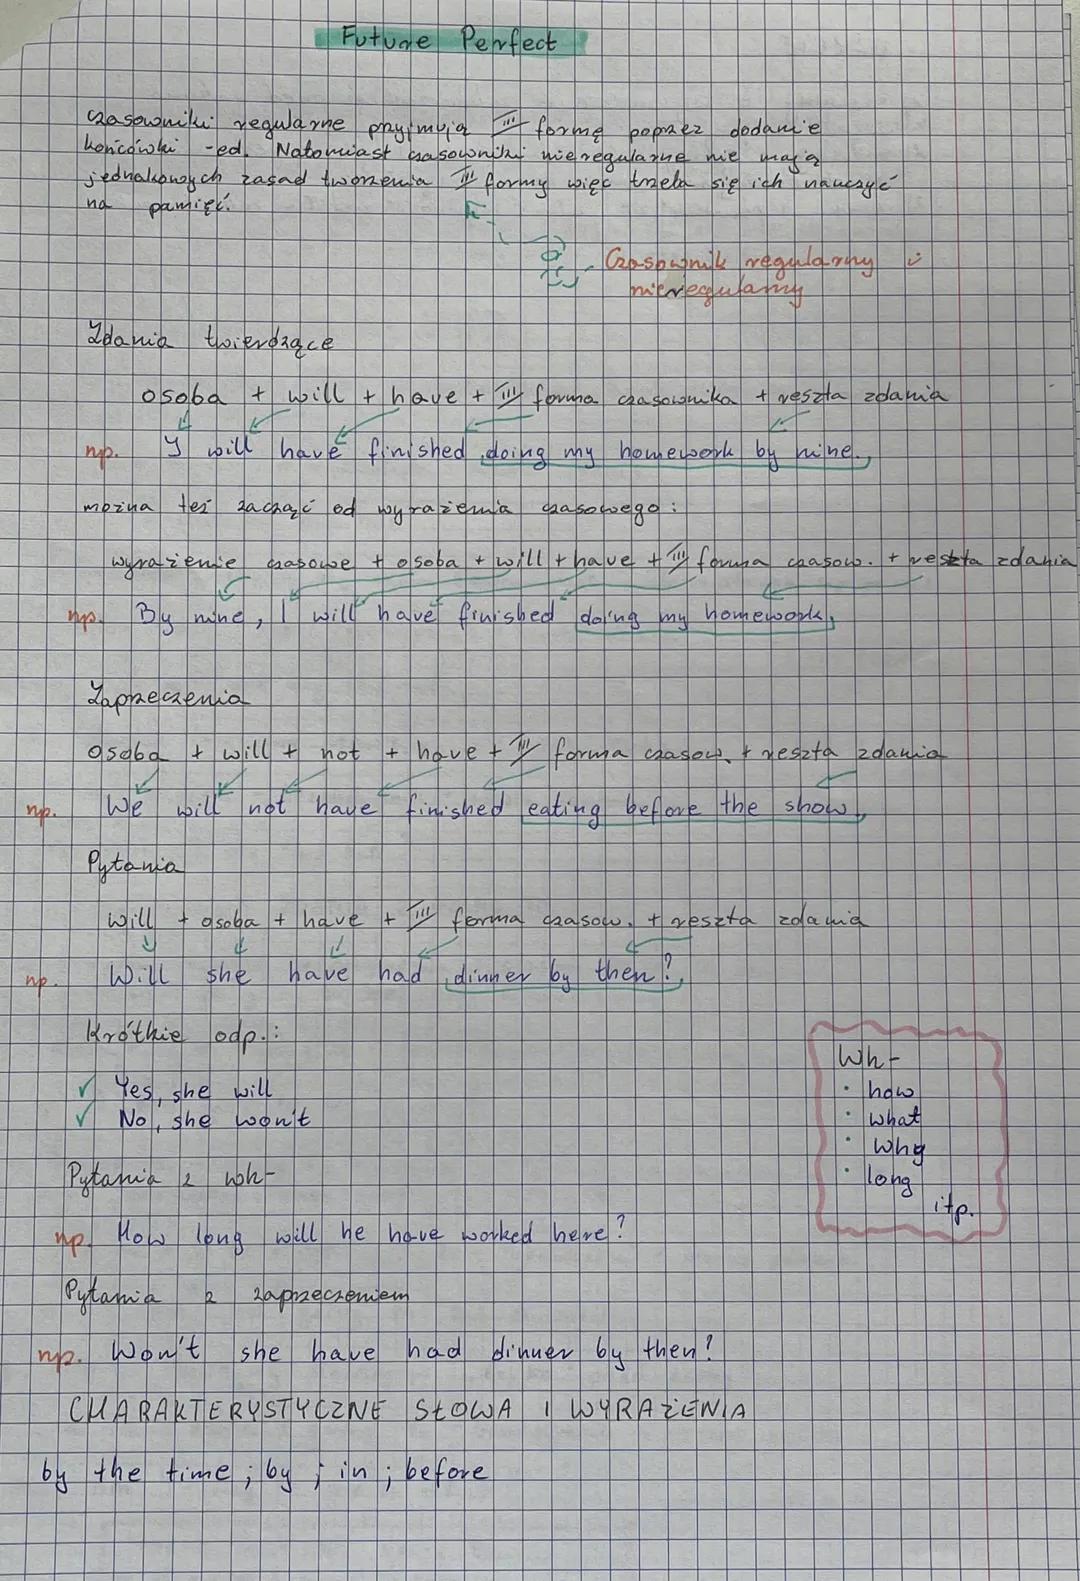 Future Perfect
czasowniki regularne przyjmują III formę poprzez dodanie
końcówki -ed. Natomiast czasowniki nieregularne nie mają
jednakowych zasad tworzenia III formy więc trzeba się ich nauczyć
na pamięć.
Czasownik regularny i
nieregularny
Zdania twierdzące
osoba + will + have + III forma czasownika + reszta zdania
np. I will have finished doing my homework by nine.
można też zacząć od wyrażenia czasowego:
wyrażenie czasowe + osoba + will + have + III forma czasow. + reszta zdania
np. By nine, I will have finished doing my homework.
Zaprzeczenia
osoba + will + not + have + III forma czasow. + reszta zdania
np. We will not have finished eating before the show.
Pytania
will + osoba + have + III forma czasow. + reszta zdania
np. Will she have had dinner by then?
Krótkie odp.:
✓ Yes, she will
✓ No, she won't
Wh-
• how
• what
• why
• long
itp.
Pytania z wh-
np. How long will he have worked here?
Pytania z zaprzeczeniem
np. Won't she have had dinner by then?
CHARAKTERYSTYCZNE SŁOWA I WYRAŻENIA
by the time ; by ; in ; before